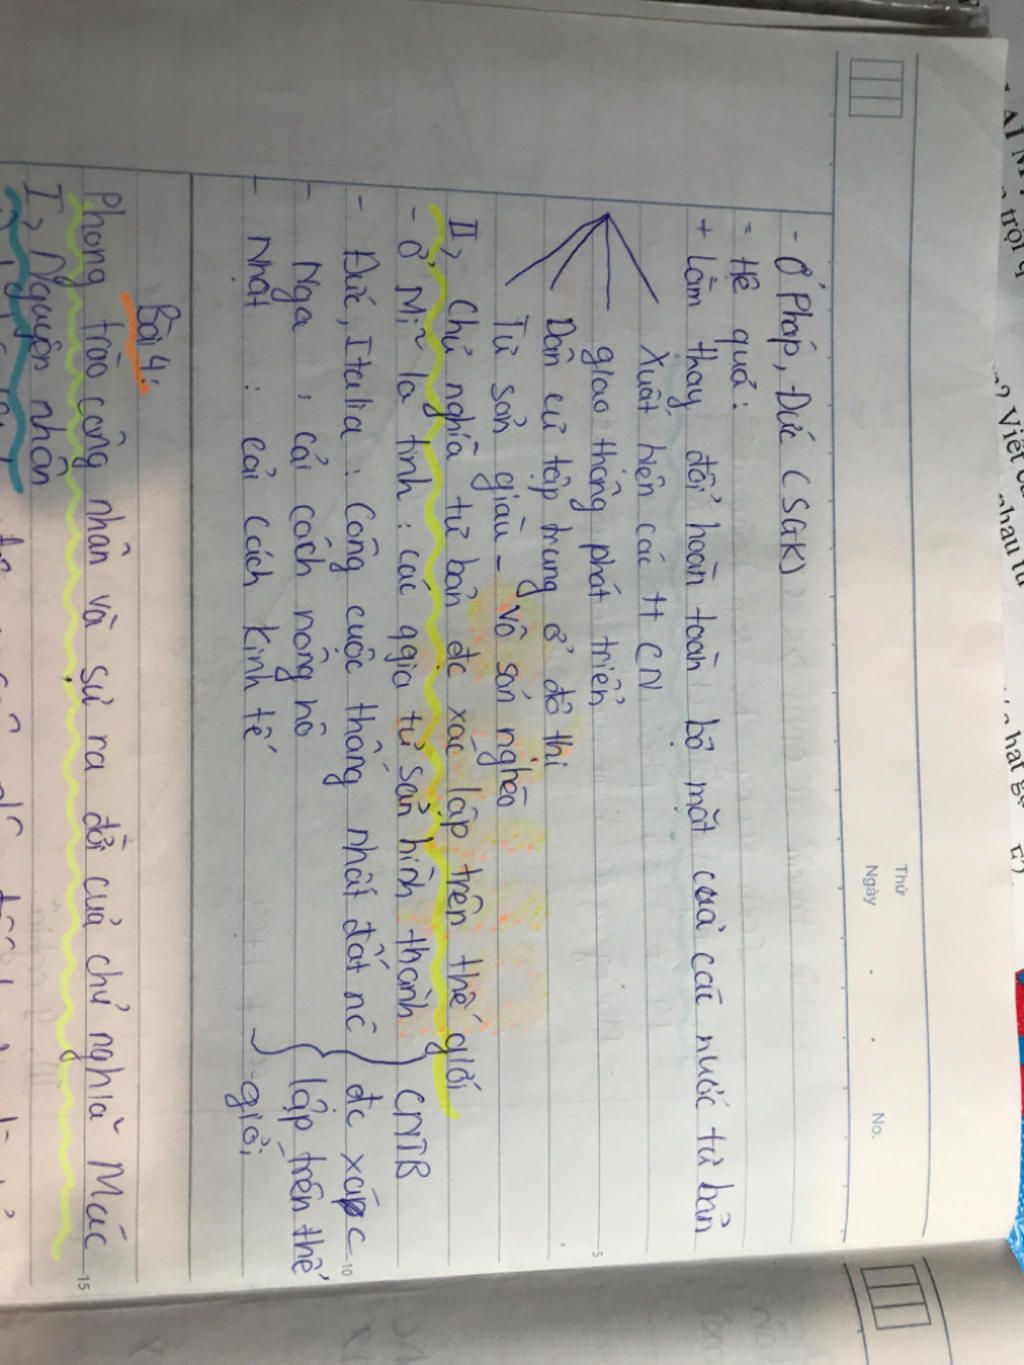 Thứ
Ngày
No.
- Ở Pháp, Đức (SGK)
= Hệ quả:
+ Làm thay đổi hoàn toàn bộ mặt của các nước tư bản
Xuất hiện các tt CN
giao thông phát triển
Dân cư tập trung ở đô thị
Tư sản giàu - vô sản nghèo
II, Chủ nghĩa tư bản đc xác lập trên thế giới
- Ở Mĩ la tinh: các qgia tư sản hình thành
- Đức, Italia: Công cuộc thống nhất đất nc
- Nga: cải cách nông nô
- Nhật: cải cách kinh tế
CNTB
đc xác
lập trên thế
giới
Bài 4:
Phong trào công nhân và sự ra đời của chủ nghĩa Mác
I, Nguyên nhân
5
10
15
Viết